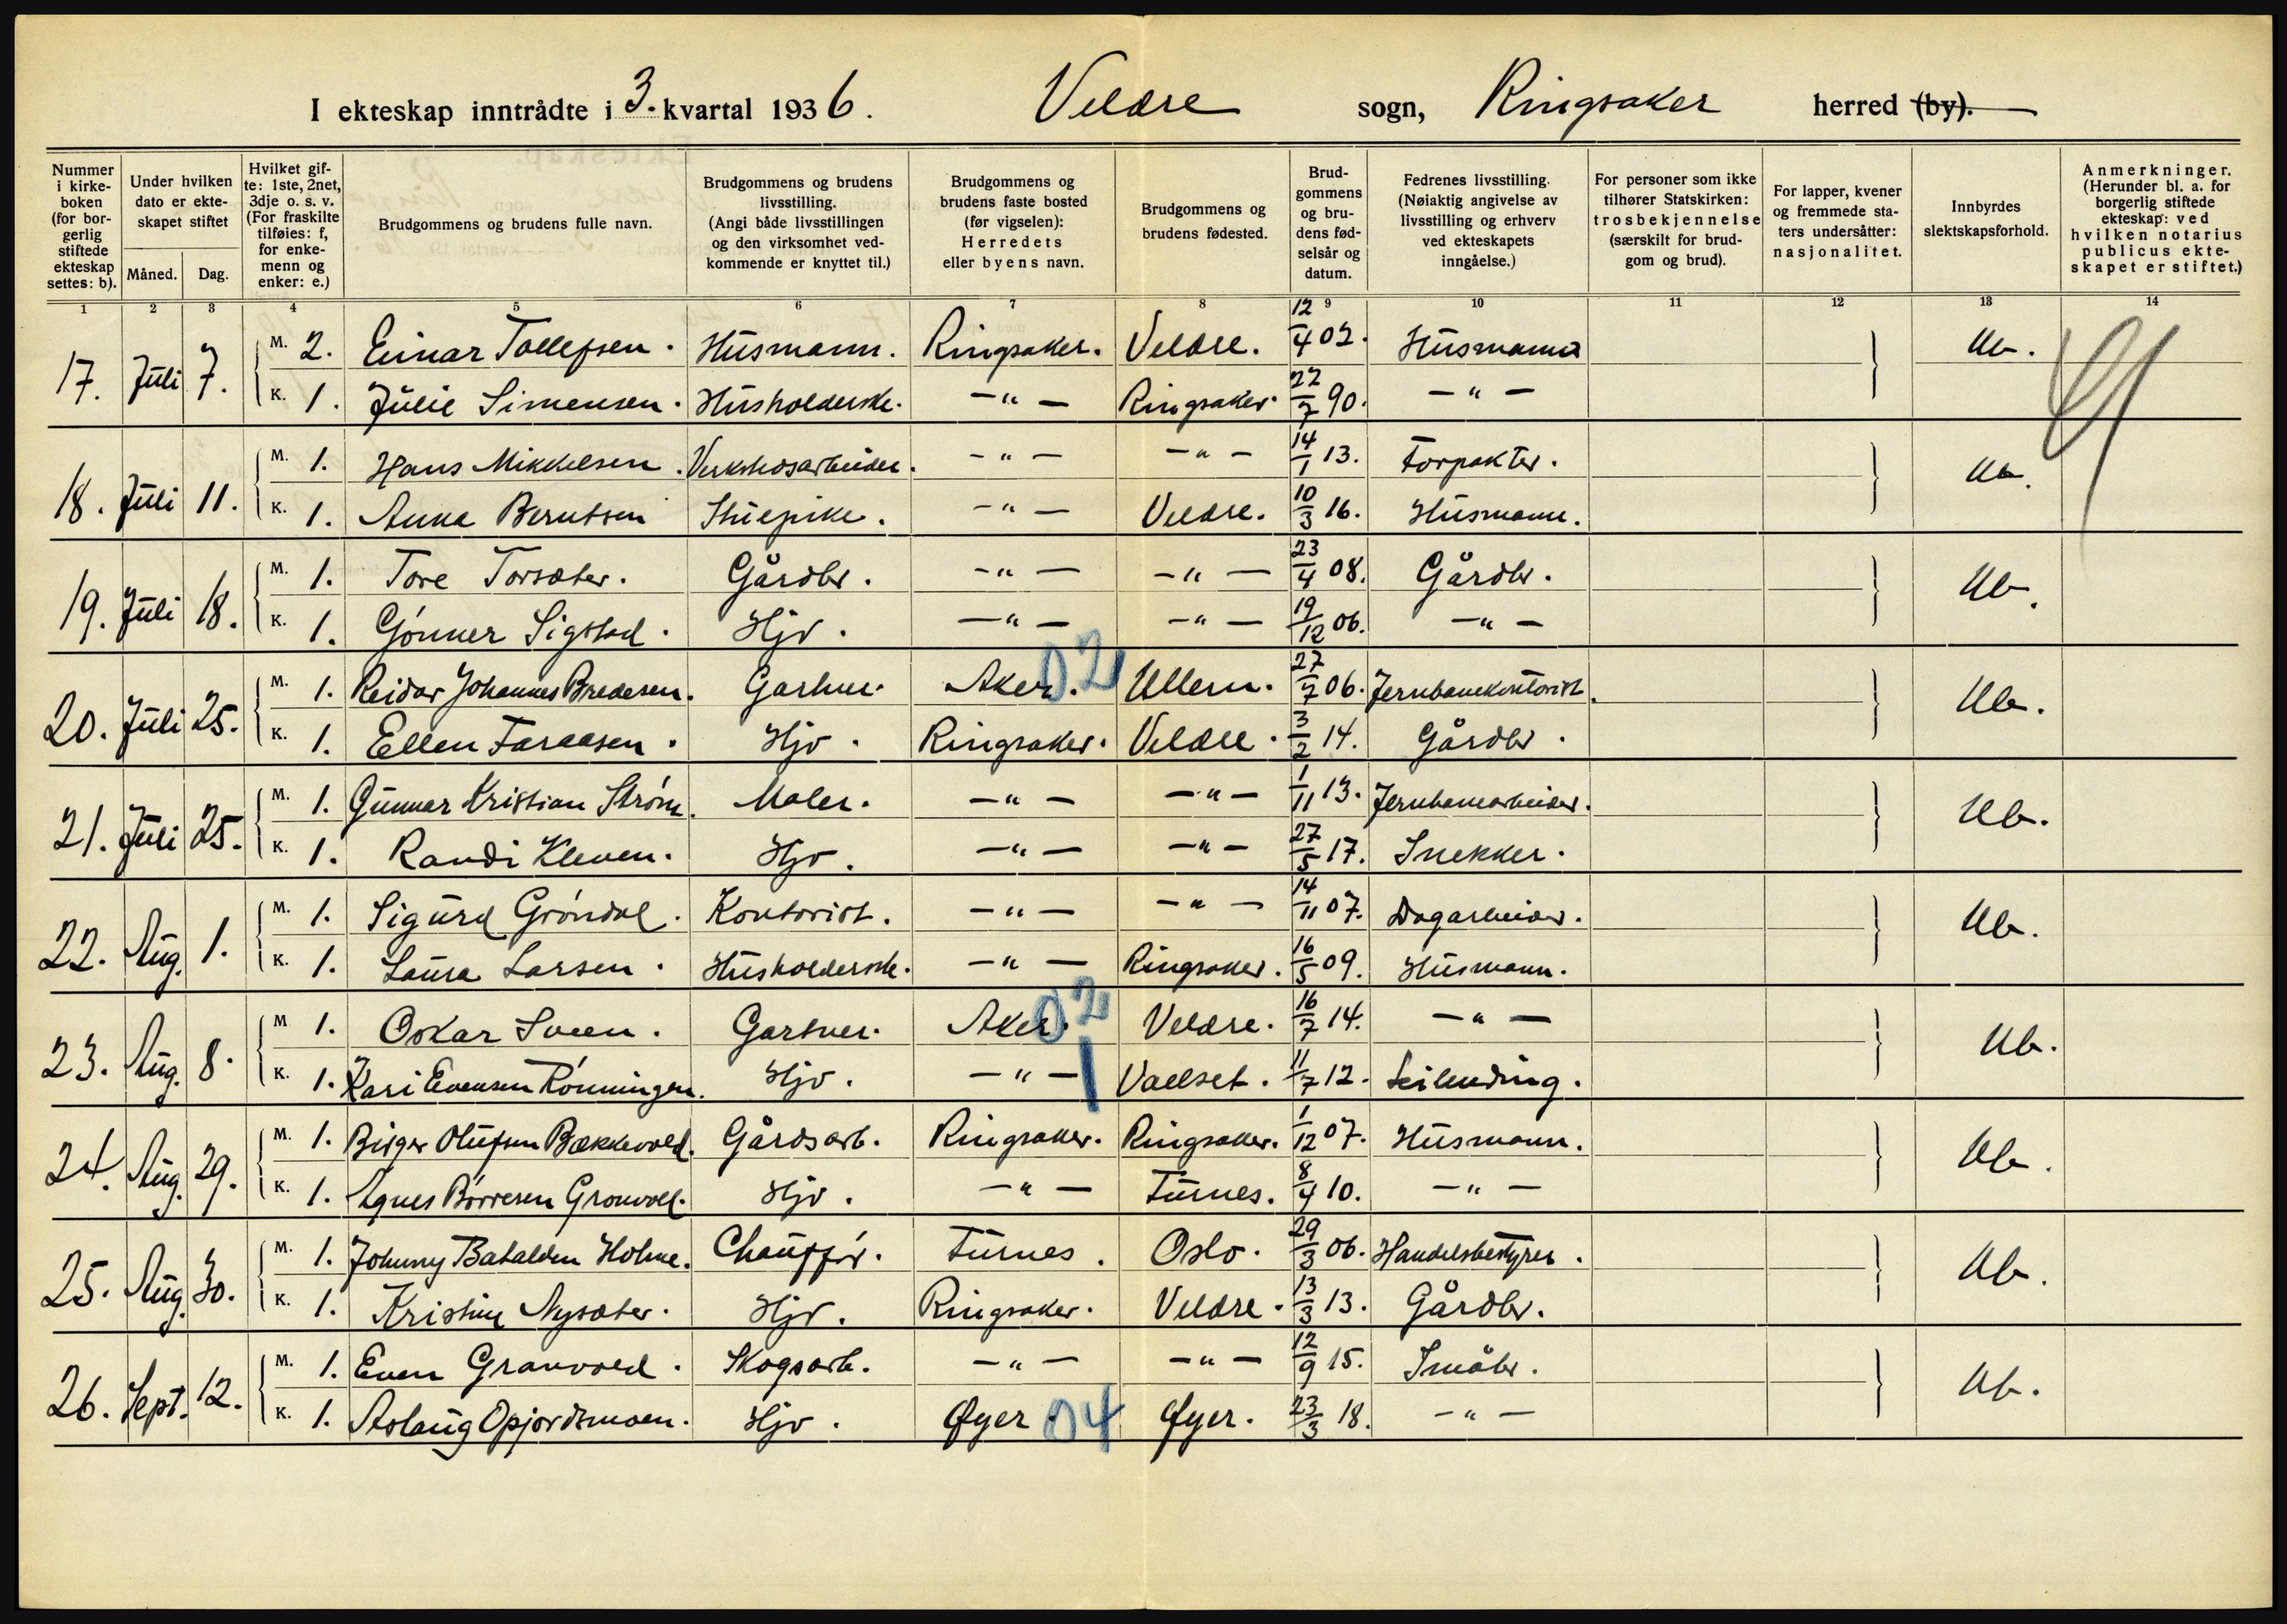 I ekteskap inntrådte i 3. kvartal 1936. Veldre sogn, Ringsaker herred (by).
Nummer i kirkeboken (for borgerlig stiftede ekteskap settes: b).
Under hvilken dato er ekteskapet stiftet
Måned. Dag.
Hvilket gifte: 1ste, 2net, 3dje o. s. v. (For fraskilte tilføies: f, for enkemenn og enker: e.)
Brudgommens og brudens fulle navn.
Brudgommens og brudens livsstilling. (Angi både livsstillingen og den virksomhet vedkommende er knyttet til.)
Brudgommens og brudens faste bosted (før vigselen): Herredets eller byens navn.
Brudgommens og brudens fødested.
Brudgommens og brudens fødselsår og datum.
Fedrenes livsstilling. (Nøiaktig angivelse av livsstilling og erhverv ved ekteskapets inngåelse.)
For personer som ikke tilhører Statskirken: trosbekjennelse (særskilt for brudgom og brud).
For lapper, kvener og fremmede staters undersåtter: nasjonalitet.
Innbyrdes slektskapsforhold.
Anmerkninger. (Herunder bl. a. for borgerlig stiftede ekteskap: ved hvilken notarius publicus ekteskapet er stiftet.)
1 2 3 4 5 6 7 8 9 10 11 12 13 14
17. Juli 7. M. 2. Einar Tollefsen. Husmann. Ringsaker. Veldre. 12/4 02. Husmann Ub.
K. 1. Julie Simensen. Husholderske. -"- Ringsaker. 22/7 90. -"-
18. Juli 11. M. 1. Hans Mikkelsen. Verkstedsarbeider. -"- -"- 14/1 13. Forpakter. Ub.
K. 1. Anna Berntsen Stuepike. -"- Veldre. 10/3 16. Husmann.
19. Juli 18. M. 1. Tore Torsæter. Gårdbr. -"- -"- 23/4 08. Gårdbr. Ub.
K. 1. Gónner Sigstad. Hjv. -"- -"- 19/12 06. -"-
20. Juli 25. M. 1. Reidar Johannes Bredesen. Gartner. Aker. 02 Ullern. 27/7 06. Jernbanekontorist. Ub.
K. 1. Ellen Faraasen. Hjv. Ringsaker. Veldre. 3/2 14. Gårdbr.
21. Juli 25. M. 1. Gunnar Kristian Strøm. Maler. -"- -"- 1/11 13. Jernbanearbeider. Ub.
K. 1. Randi Kleven. Hjv. -"- -"- 27/5 17. Snekker.
22. Aug. 1. M. 1. Sigurd Gróndal. Kontorist. -"- -"- 14/11 07. Dagarbeider. Ub.
K. 1. Laura Larsen. Husholderske. -"- Ringsaker. 16/5 09. Husmann.
23. Aug. 8. M 1. Oskar Sveen. Gartner. Aker. 02 Veldre. 16/7 14. -"- Ub.
K. 1. Kari Evensen Rónningen. Hjv. -"- Vallset. 11/7 12. Leilending.
24. Aug. 29. M. 1. Birger Olufsen Bækkevold. Gårdsarb. Ringsaker. Ringsaker. 1/12 07. Husmann. Ub.
K. 1. Agnes Børresen Gronvold. Hjv. -"- Furnes. 8/4 10. -"-
25. Aug. 30. M. 1. Johnny Batalden Holme. Chauffór. Furnes. Oslo. 29/3 06. Handelsbestyrer. Ub.
K. 1. Kristine Nysæter. Hjv. Ringsaker. Veldre. 13/3 13. Gårdbr.
26. Sept. 12. M. 1. Even Granvold. Skogsarb. -"- -"- 12/9 15. Småbr. Ub.
K. 1. Aslaug Opjordsmoen. Hjv. Øyer 04 Øyer. 23/3 18. -"-